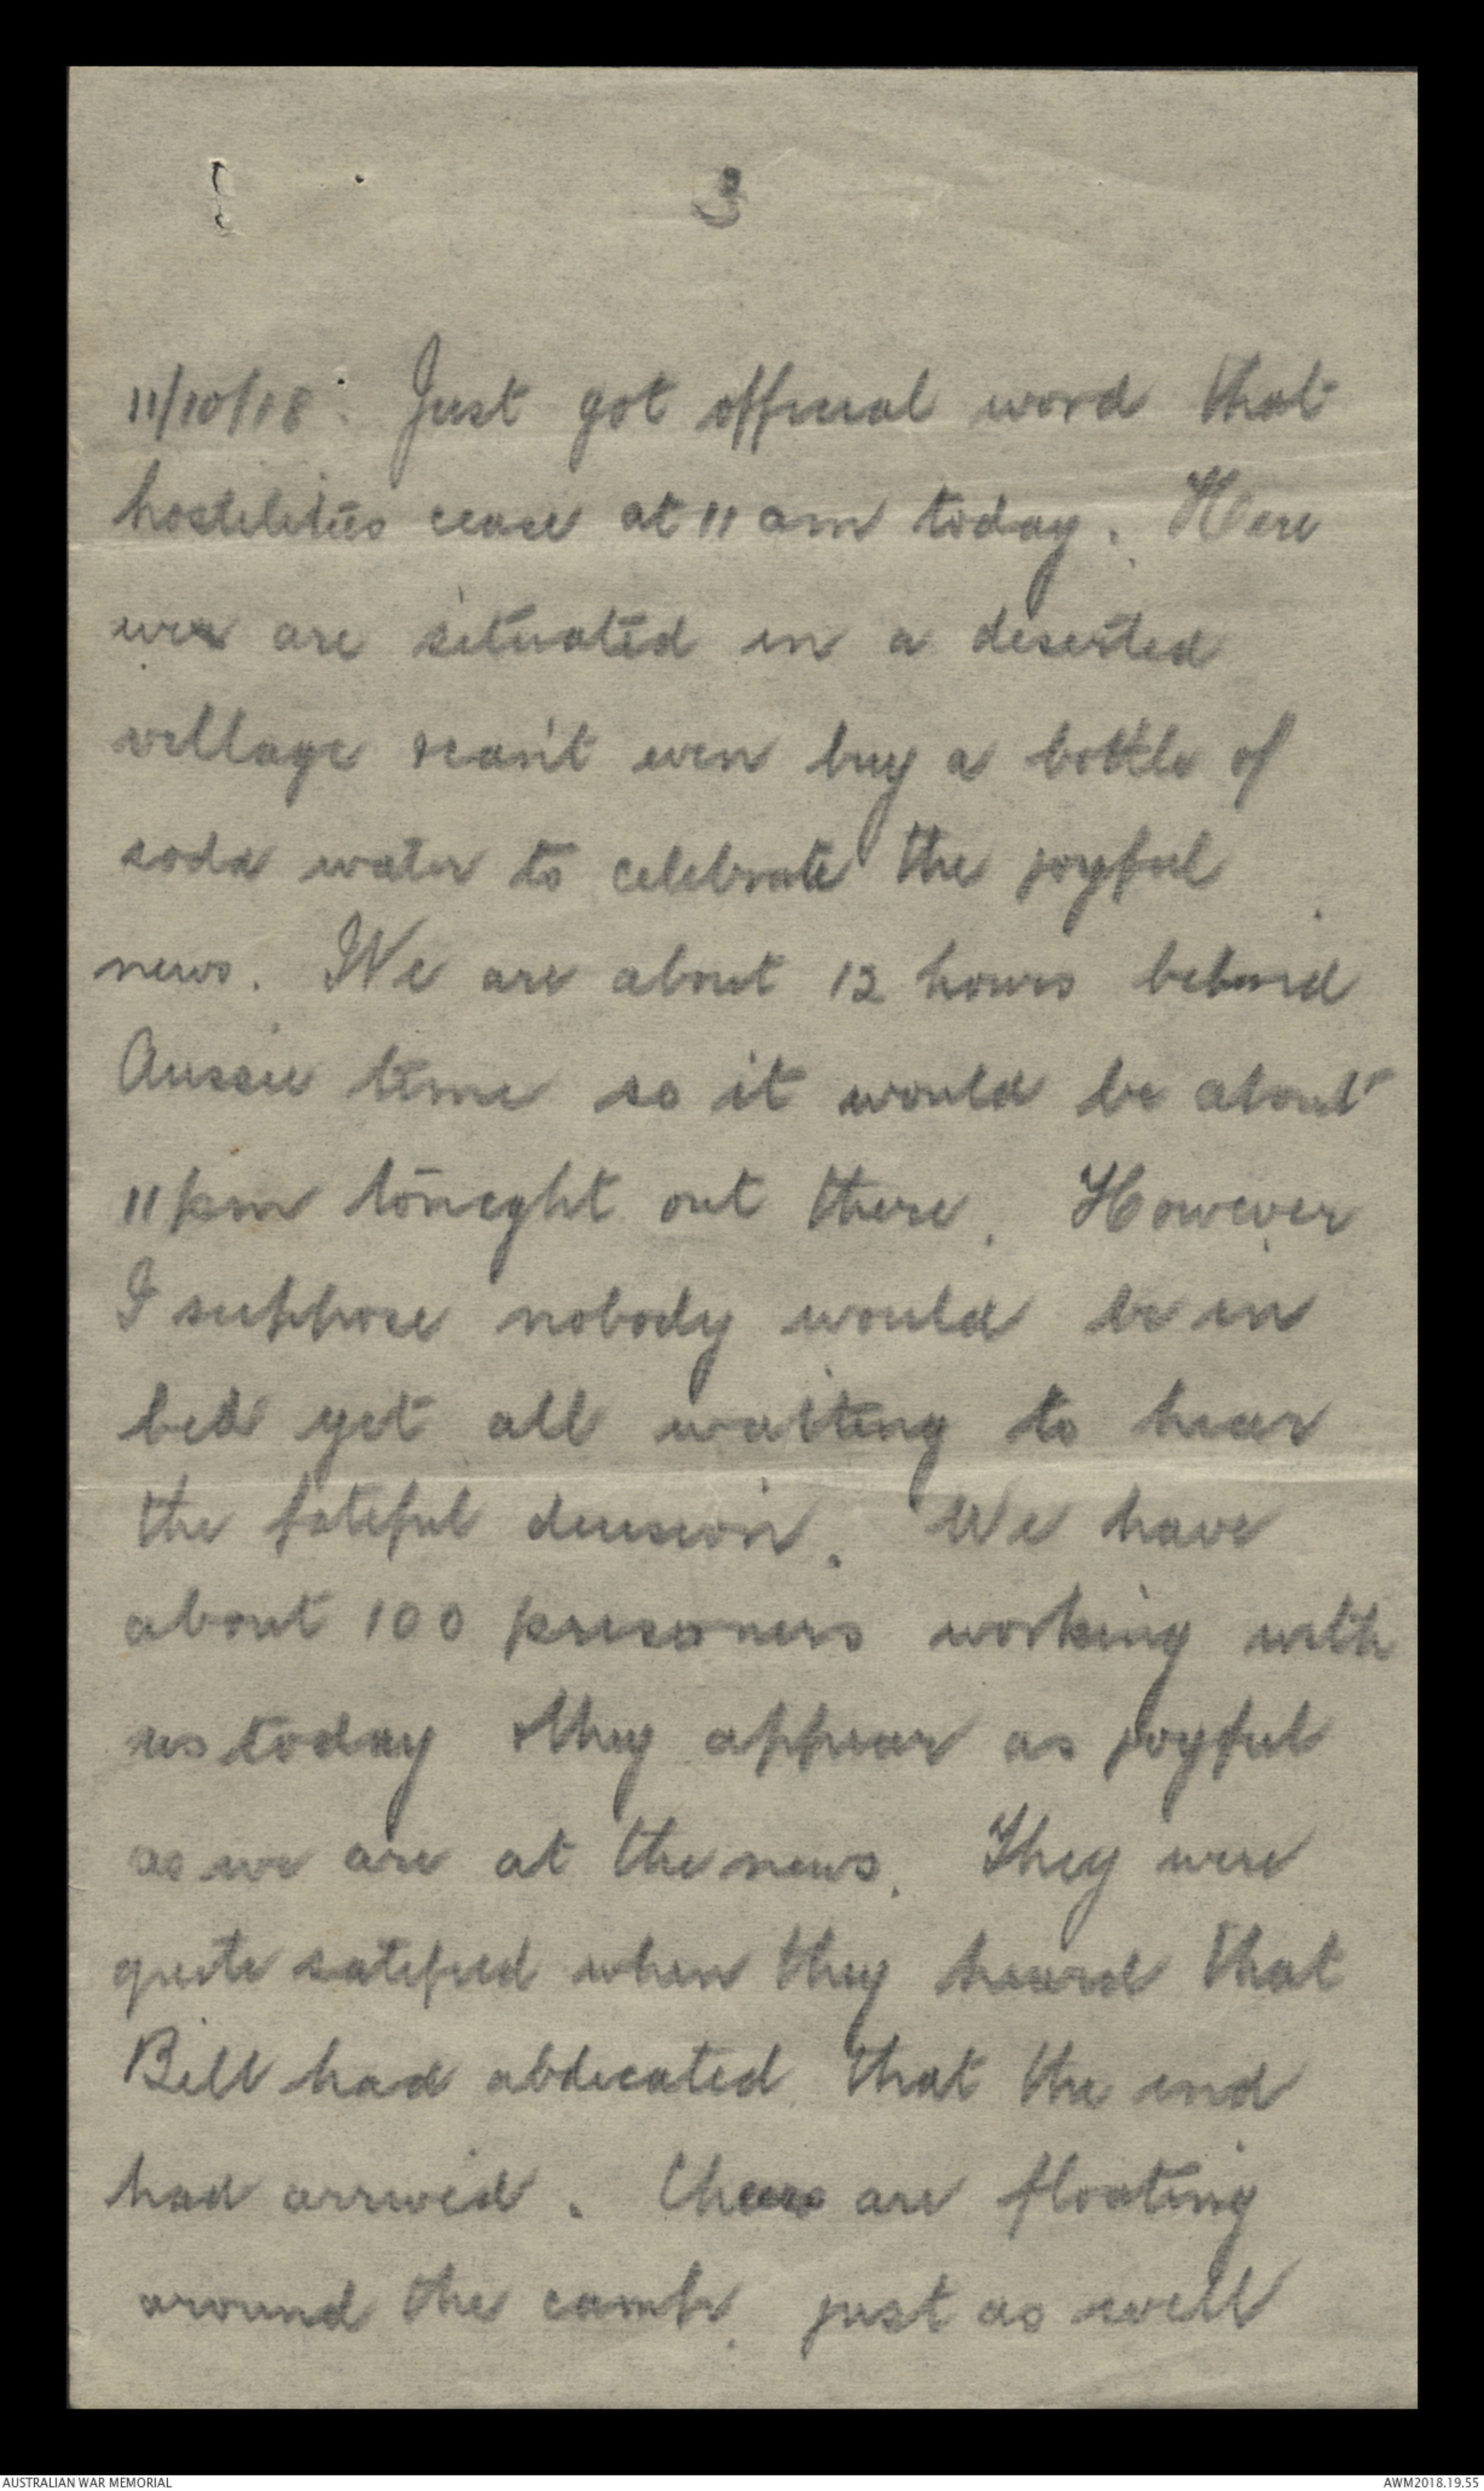 3
11/10/18. Just got official word that
hostilities cease at 11 am today. Here
we are situated in a deserted
village & can't even buy a bottle of
soda water to celebrate the joyful
news. We are about 12 hours behind
Aussie time so it would be about
11 pm tonight out there. However
I suppose nobody would be in
bed yet all waiting to hear
the fateful decision. We have
about 100 prisoners working with
us today & they appear as joyful
as we are at the news. They were
quite satisfied when they heard that
Bill had abdicated that the end
had arrived. Cheers are floating
around the camp, just as well
AUSTRALIAN WAR MEMORIAL
AWM2018.19.55